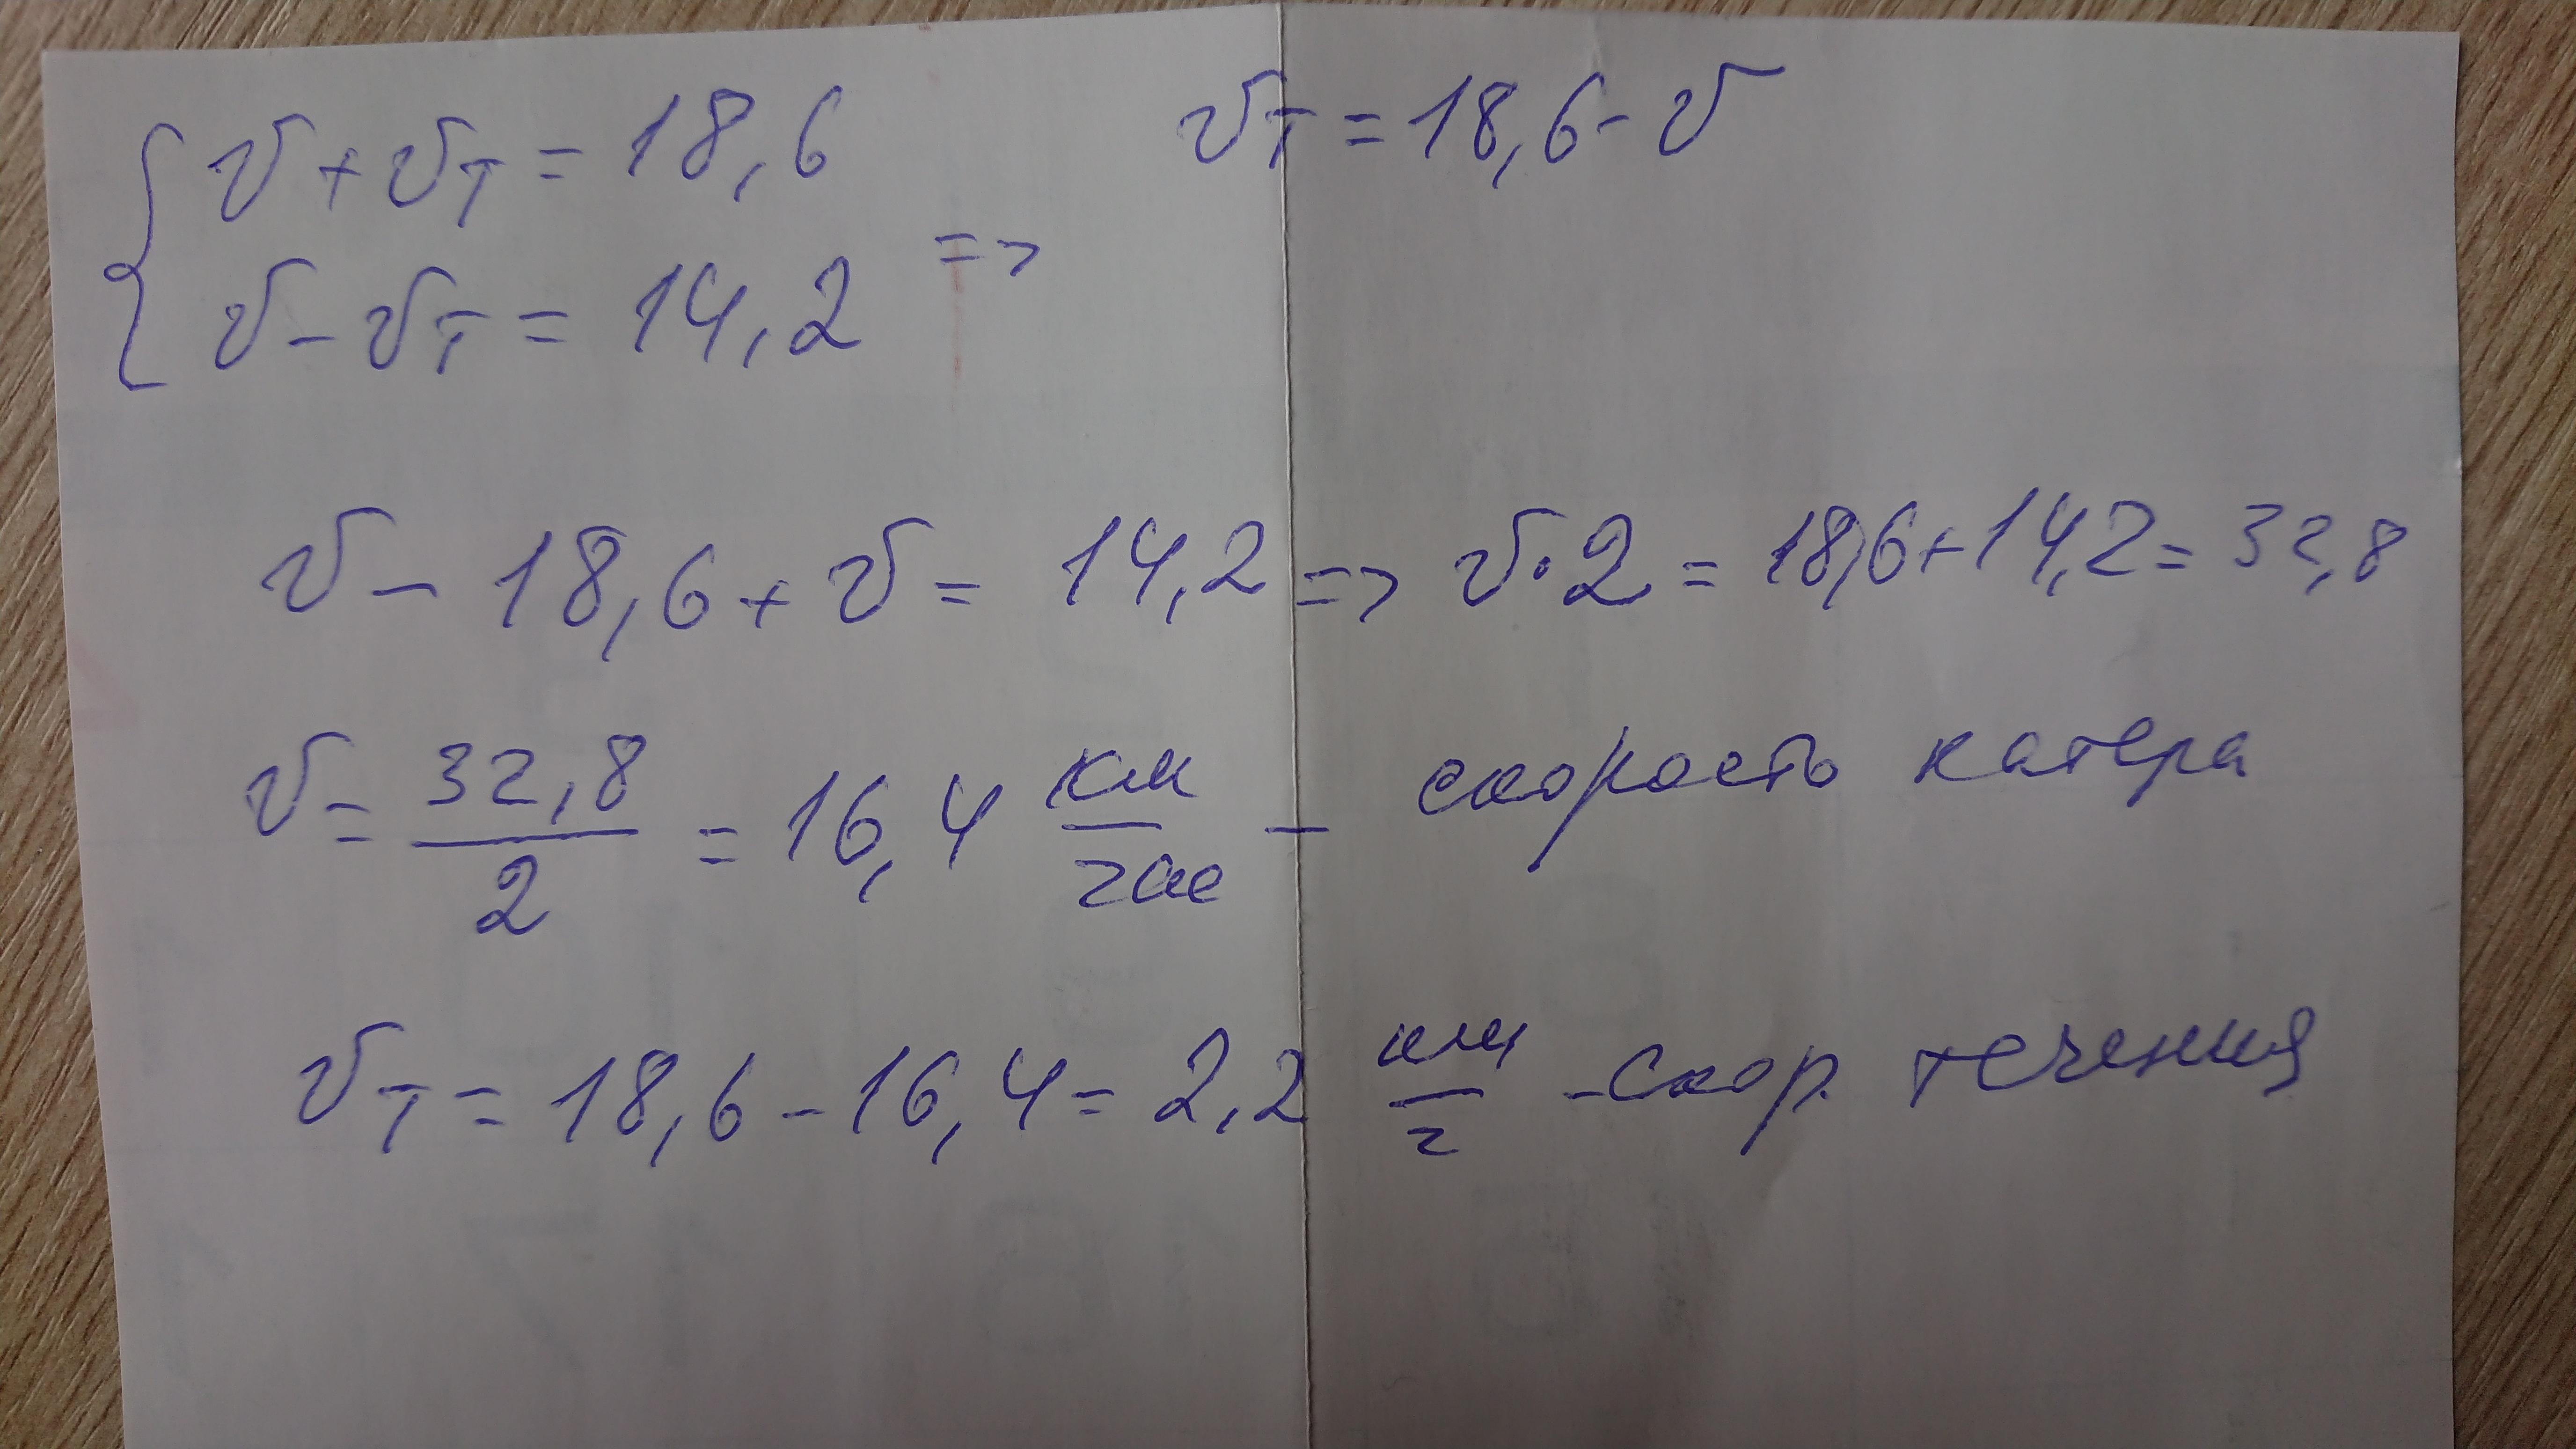 { v + vт = 18,6
v - vт = 14,2 =>
vт = 18,6 - v
v - 18,6 + v = 14,2 => v·2 = 18,6 + 14,2 = 32,8
v = 32,8/2 = 16,4 км/час - скорость катера
vт = 18,6 - 16,4 = 2,2 км/ч - скор. течения